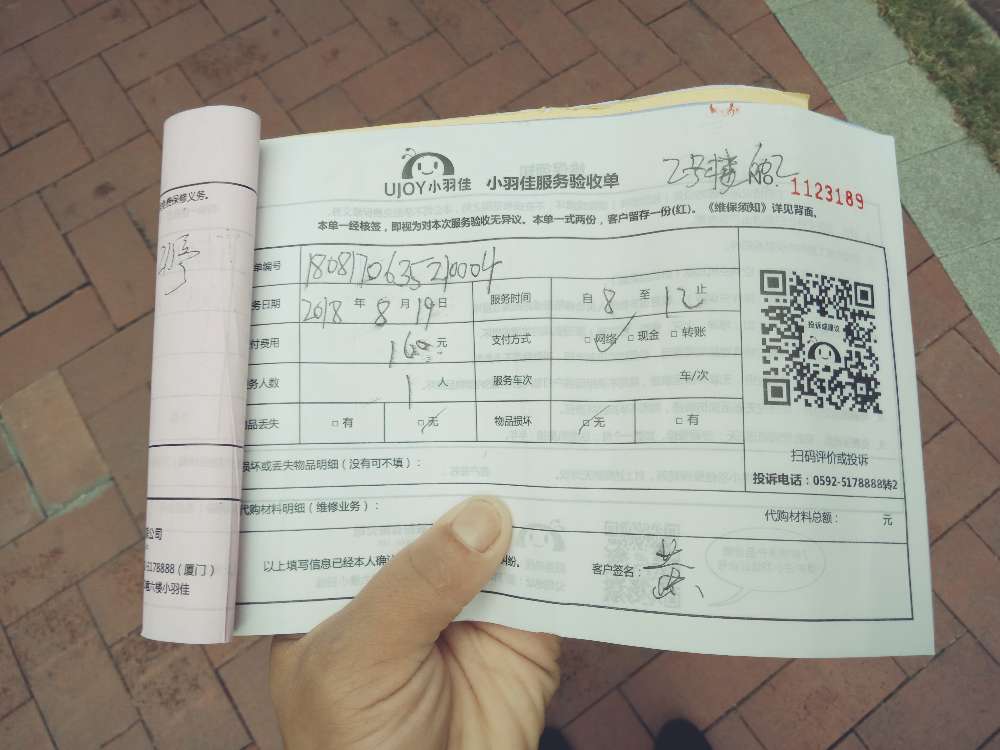 UJOY小羽佳 小羽佳服务验收单
2号楼
1123189
本单一经核签，即视为对本次服务验收无异议。本单一式两份，客户留存一份(红)。《维保须知》详见背面。
单编号 1808170635210004
务日期 2018 年 8 月 19 日 服务时间 自 8 至 12 止
付费用 160 元 支付方式 □ 网络 □ 现金 □ 转账
务人数 1 人 服务车次 车/次
品丢失 □ 有 □ 无 物品损坏 □ 无 □ 有
投诉或建议
扫码评价或投诉
投诉电话：0592-5178888转2
损坏或丢失物品明细（没有可不填）：
代购材料明细（维修业务）： 代购材料总额： 元
以上填写信息已经本人确 纠纷。 客户签名：黄
免费保修义务。
公司
5178888（厦门）
六楼小羽佳